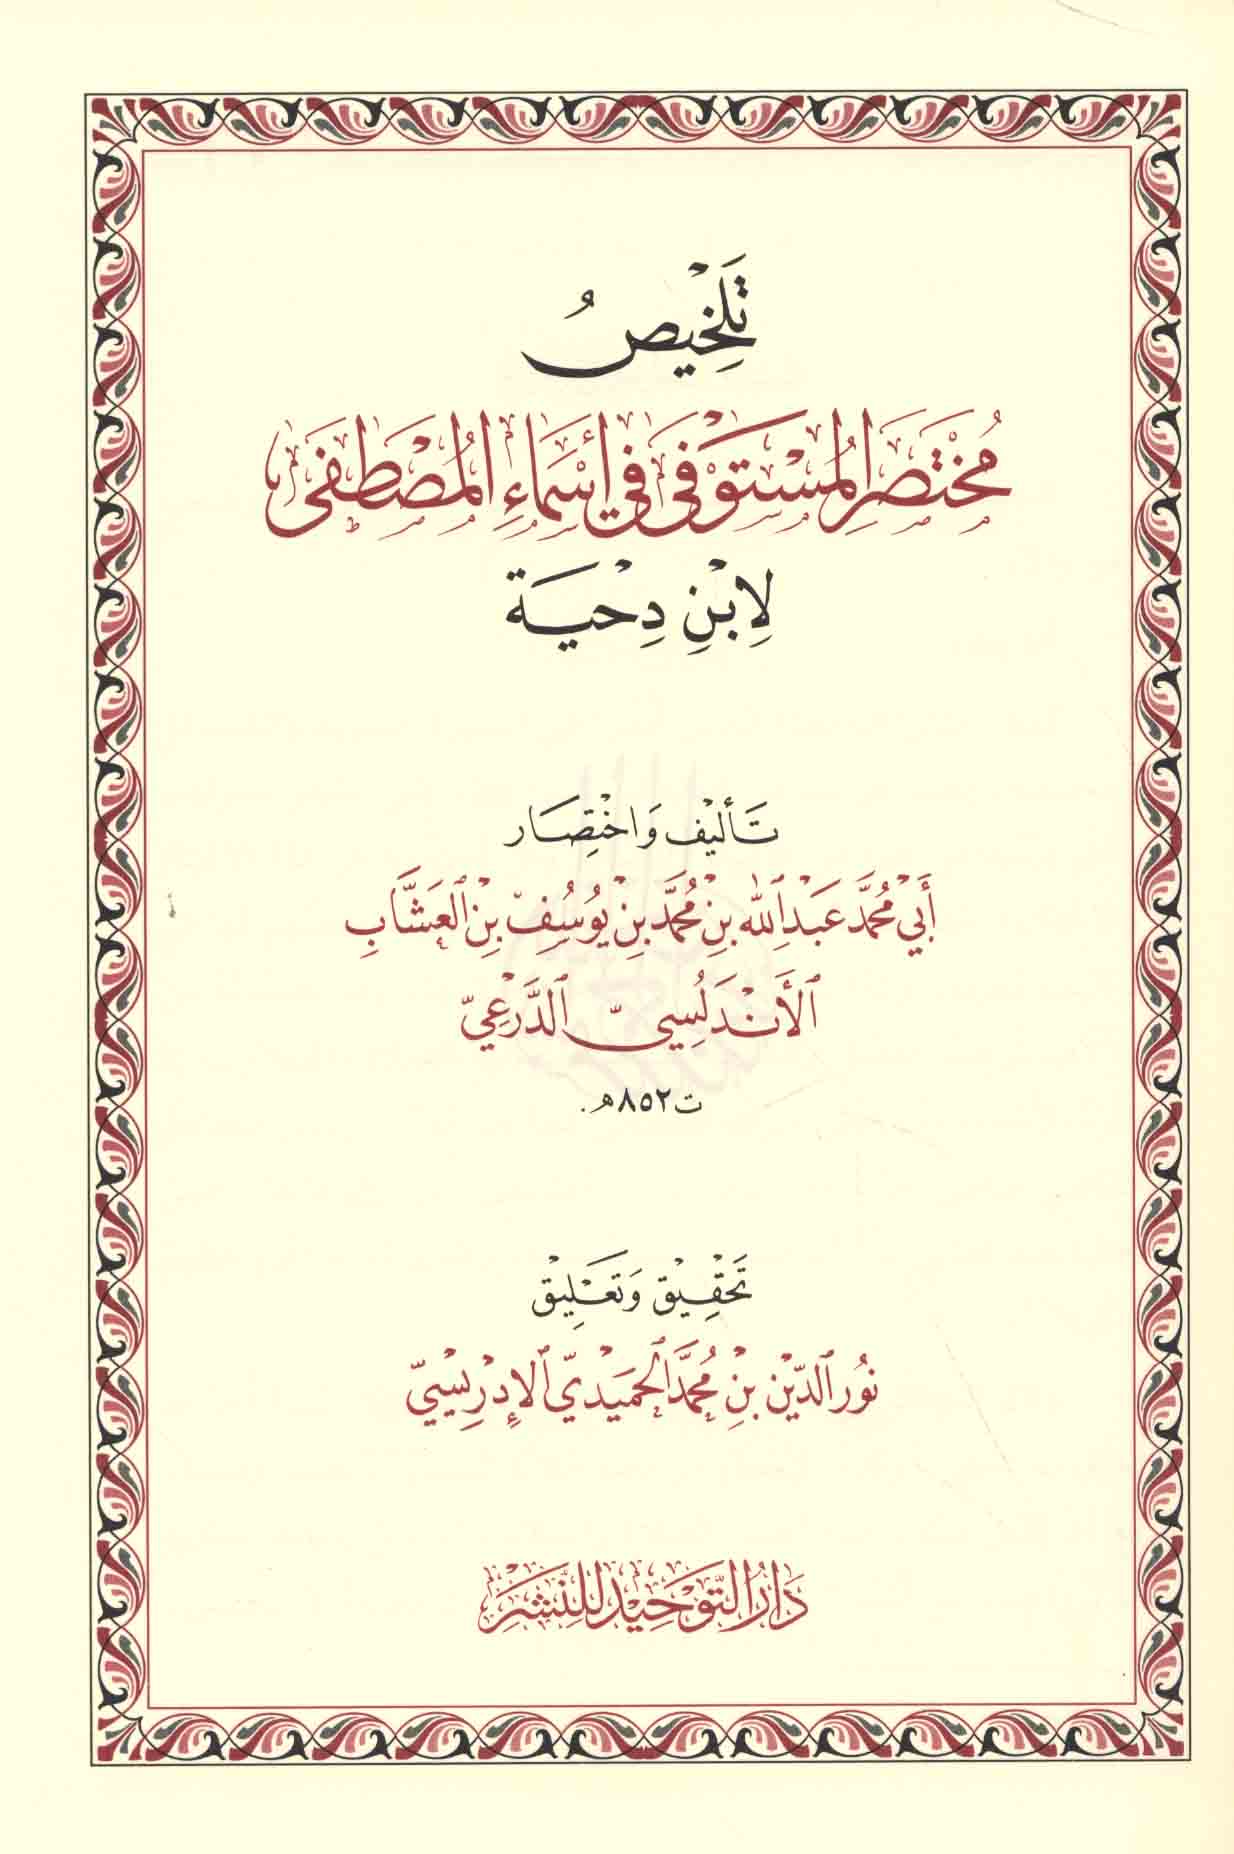 تَلْخِيصُ
مُخْتَصَرِ المُسْتَوْفَى فِي أَسْمَاءِ المُصْطَفَى
لِابْنِ دِحْيَة
تَأليف وَاختِصَار
أَبِي مُحَمَّد عَبْدِ اللَّه بْنِ مُحَمَّد بْنِ يُوسُف بْنِ العَشَّابِ
الأَنْدَلُسِيّ الدَّرْعِيّ
ت ٨٥٢ هـ.
تَحْقِيق وَتَعْلِيق
نُور الدِّين بْنِ مُحَمَّد الحَمِيدِيّ الإِدْرِيسِيّ
دَارُ التَّوْحِيدِ لِلنَّشْرِ